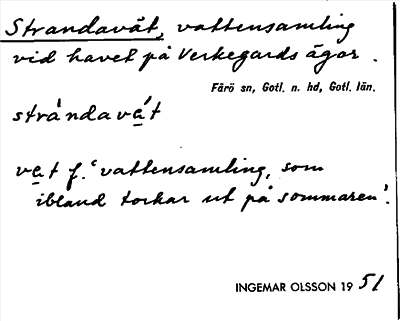 Strandavät, vattensamling
vid havet på Verkegards ägor.
Fårö sn, Gotl. n. hd, Gotl. län.
strándave̲t
ve̲t f. 'vattensamling, som
ibland torkar ut på sommaren'.
INGEMAR OLSSON 1951